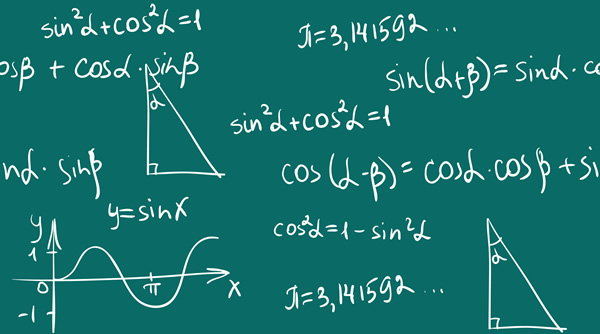 sin²α+cos²α=1
π=3,141592...
osβ + cosα · sinβ
sin(α+β)= sinα · co
α
sin²α+cos²α=1
nα · sinβ
cos(α-β)= cosα·cosβ + si
y=sinx
cos²α=1-sin²α
y
1
α
0
π
x
π=3,141592...
-1